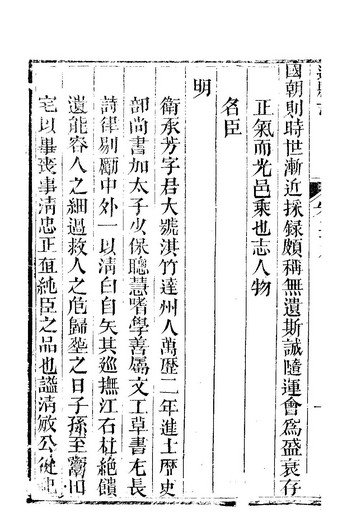 國朝則時世漸近採録頗稱無遺斯誠隨運會爲盛衰存
正氣而光邑乘也志人物
名臣
明
衛承芳字君大號淇竹達州人萬歷二年進士歷吏
部尚書加太子少保聰慧嗜學善屬文工草書尤長
詩律剔勵中外一以清白自矢其巡撫江右杜絶饋
遺能容人之細過救人之危歸塟之日子孫至鬻田
宅以畢喪事清忠正直純臣之品也謚清敏公從祀